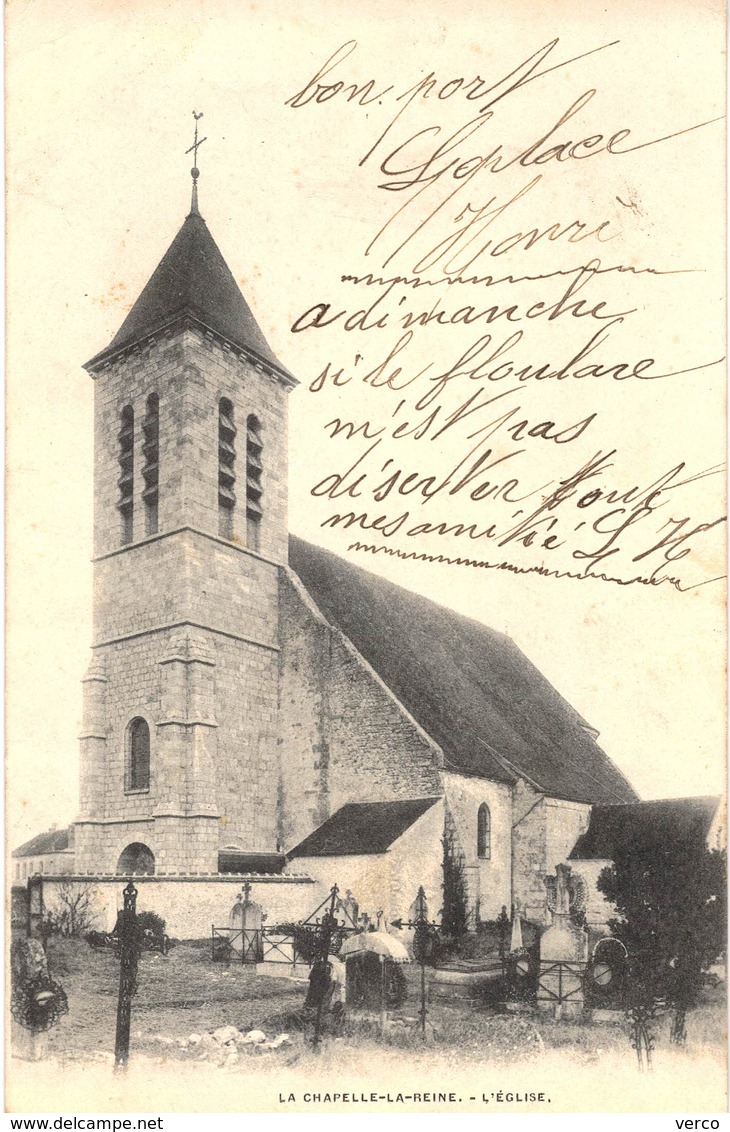 bon port
Laplace
Henri
a dimanche
si le floulare
m'est pas
diserter tout
mes amitié L H
LA CHAPELLE-LA-REINE. - L'ÉGLISE.
delcampe.net
verco